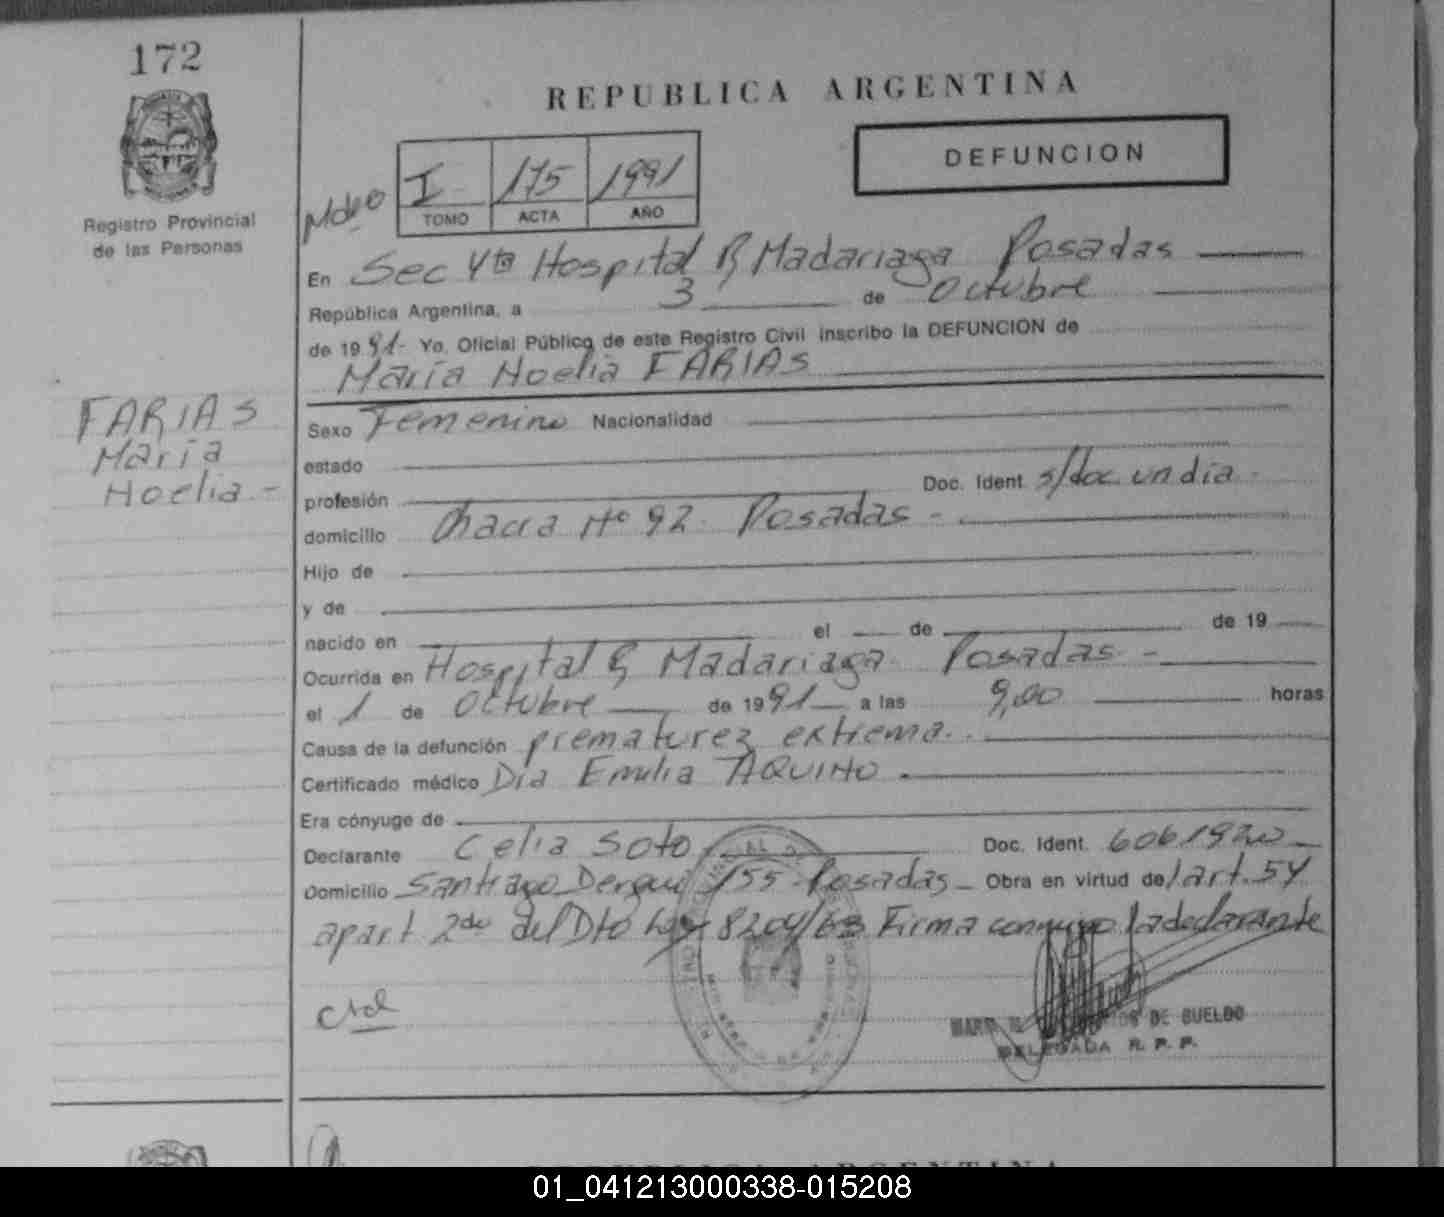 172
REPUBLICA ARGENTINA
DEFUNCION
Registro Provincial
de las Personas
I 175 1991
TOMO ACTA AÑO
En Sec 4ta Hospital R, Madariaga Posadas
República Argentina, a 3 de Octubre
de 1991- Yo, Oficial Público de este Registro Civil inscribo la DEFUNCION de
María Noelia FARIAS
FARIAS
María
Noelia -
Sexo Femenino Nacionalidad
estado
profesión Doc. Ident. s/doc un dia -
domicilio Chacra Nº 92 Posadas -
Hijo de
y de
nacido en el de de 19
Ocurrida en Hospital R, Madariaga Posadas -
el 1 de Octubre de 1991 a las 9,00 horas
Causa de la defunción prematurez extrema.
Certificado médico Dra Emilia AQUINO
Era cónyuge de
Declarante Celia Soto Doc. Ident.
Domicilio Santiago Derqui 155 Posadas - Obra en virtud del art. 54
apart 2do del Dto Ley 8204/63 Firma conmigo la declarante
DE SUELDO
DELEGADA R. P. P.
REPUBLICA ARGENTINA
01_041213000338-015208